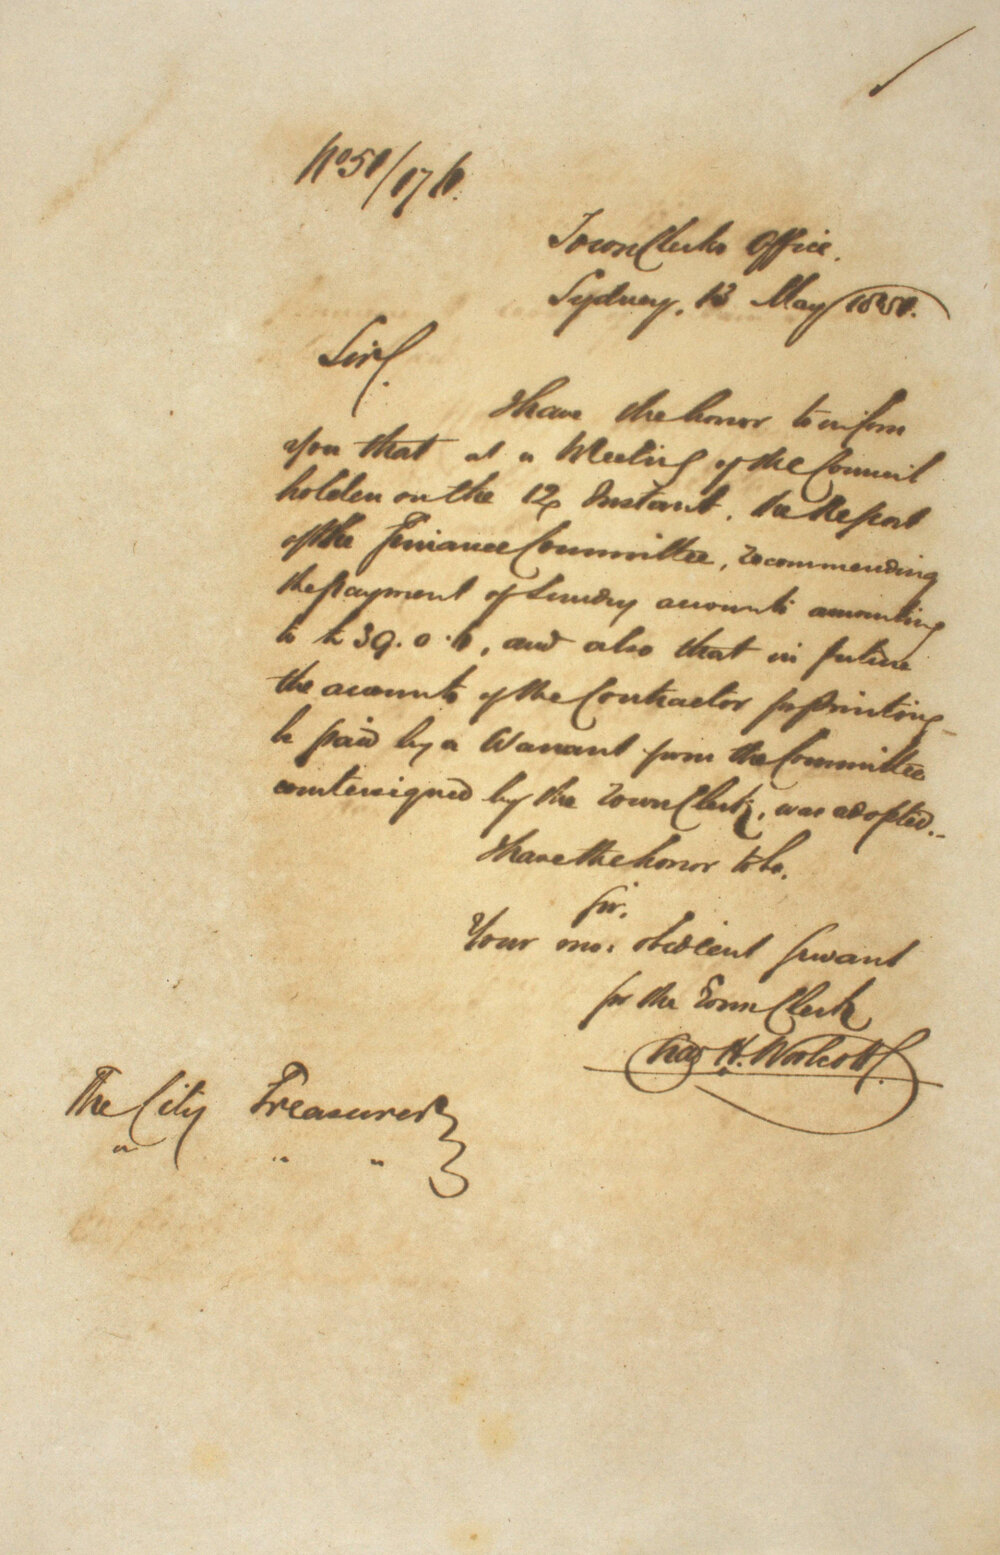 Town Clerks Office.
Sydney, 13 May 1850.
Sir,
I have the honor to inform
you that at a Meeting of the Council
holden on the 12 Instant, the Report
of the Finance Committee, recommending
the payment of Sundry accounts amounting
to 39.0., and also that in future
the accounts of the Contractor for Printing
be paid by a Warrant from the Committee
countersigned by the Town Clerk, was adopted.
I have the honor to be,
Sir,
Your mo: obedient Servant
for the Town Clerk
Chas H. Woolcott
The City Treasurer